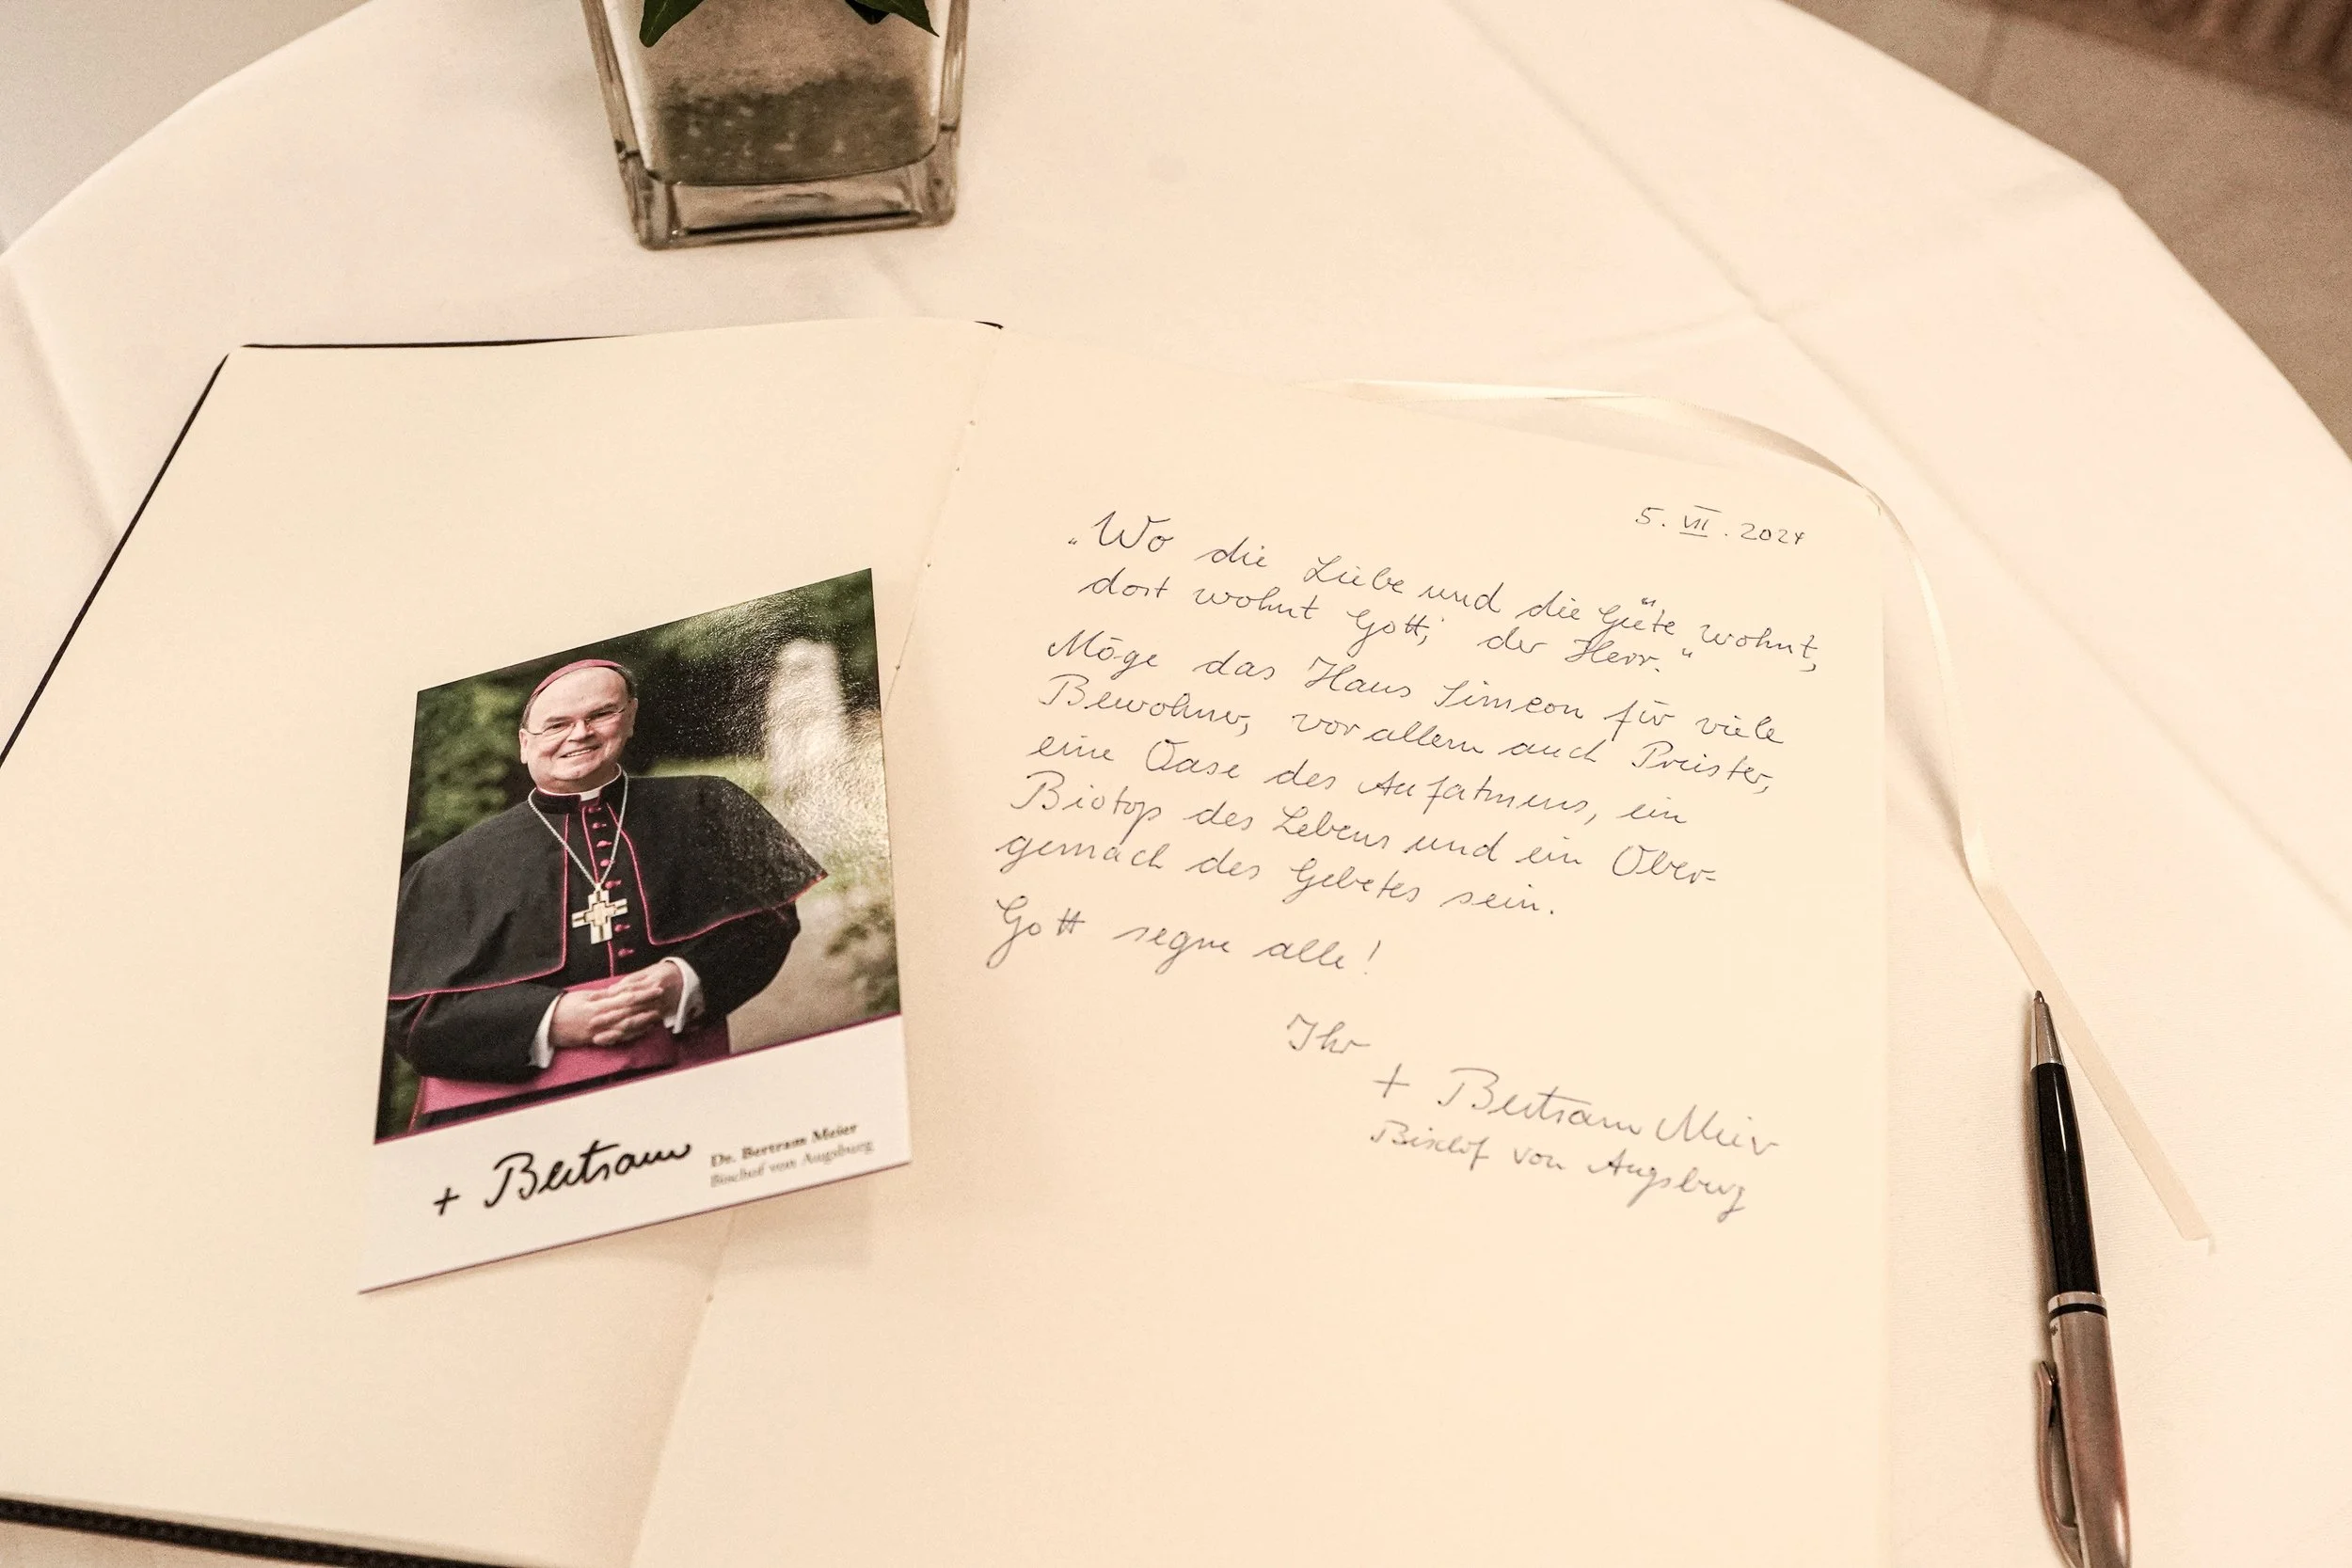 + Bertram
Dr. Bertram Meier
Bischof von Augsburg
5. VII. 2024
„Wo die Liebe und die Güte wohnt,
dort wohnt Gott, der Herr.“
Möge das Haus Simeon für viele
Bewohner, vor allem auch Priester,
eine Oase des Aufatmens, ein
Biotop des Lebens und ein Ober-
gemach des Gebetes sein.
Gott segne alle!
Ihr
+ Bertram Meier
Bischof von Augsburg